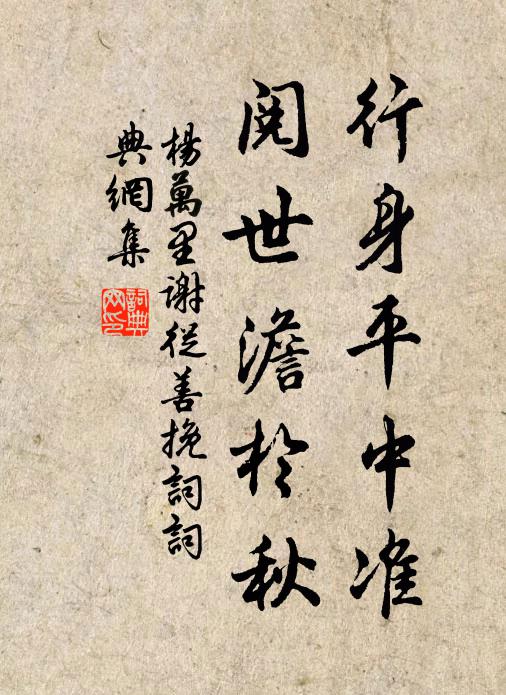 行身平中准
閱世澹於秋
楊萬里謝從善挽詞詞
典網集
詞典網印